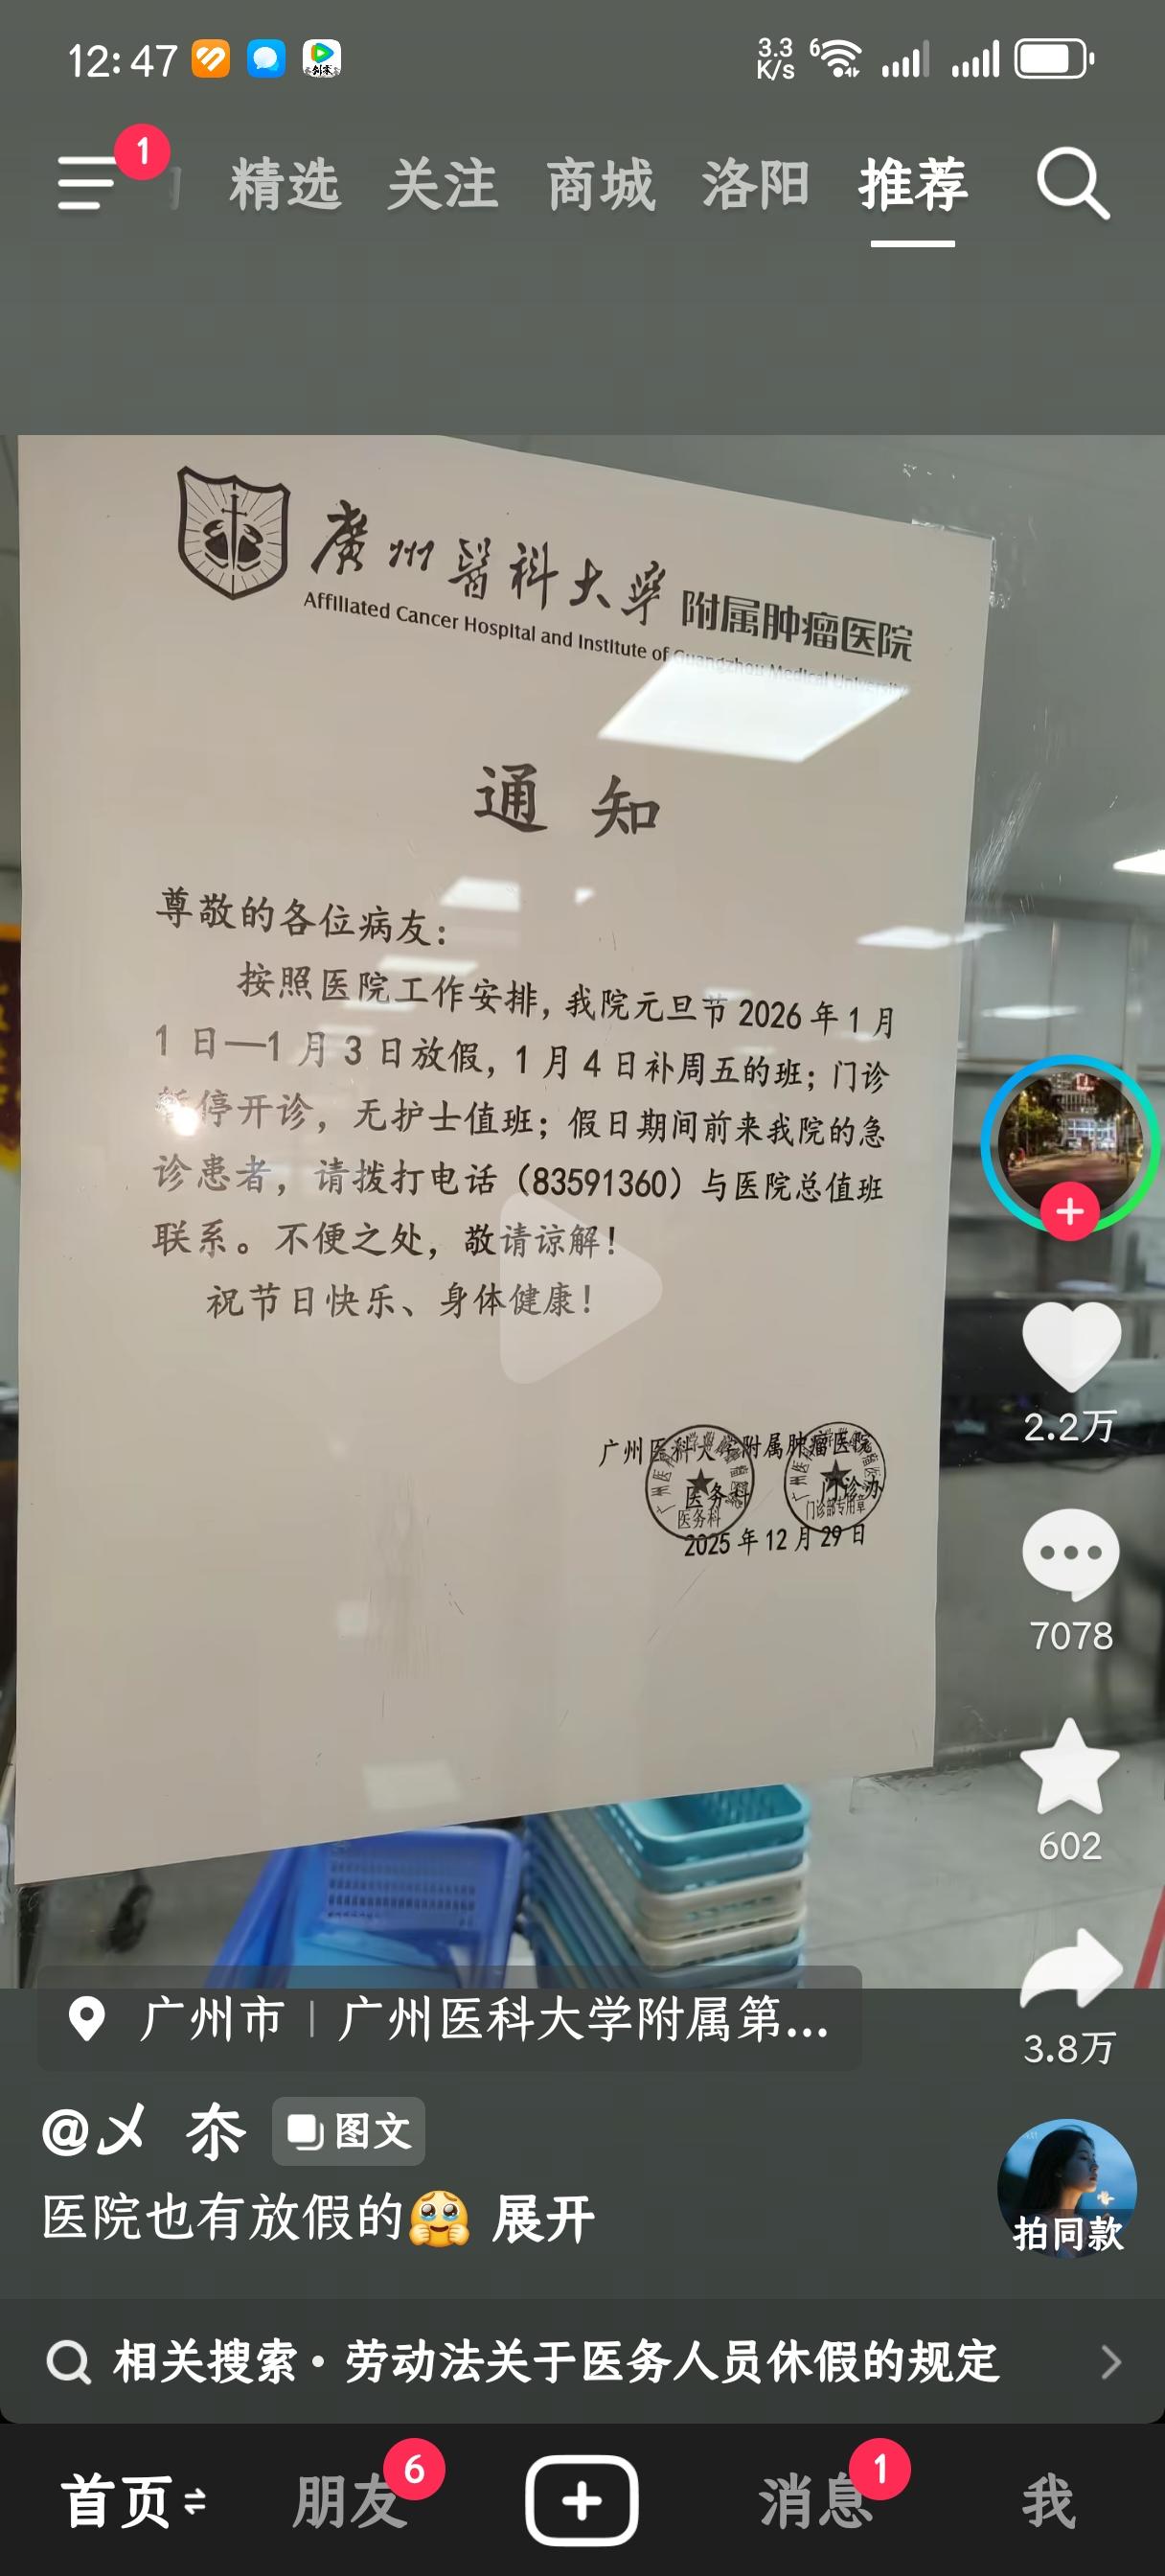 12:47
3.3
K/s
6
1
精选 关注 商城 洛阳 推荐
廣州醫科大學 附属肿瘤医院
Affiliated Cancer Hospital and Institute of Guangzhou Medical University
通 知
尊敬的各位病友：
按照医院工作安排，我院元旦节 2026 年 1 月
1 日—1 月 3 日放假，1 月 4 日补周五的班；门诊
暂停开诊，无护士值班；假日期间前来我院的急
诊患者，请拨打电话（83591360）与医院总值班
联系。不便之处，敬请谅解！
祝节日快乐、身体健康！
广州医科大学附属肿瘤医院
医务科 门诊办
医务科 门诊部专用章
2025 年 12 月 29 日
2.2万
7078
602
3.8万
广州市 | 广州医科大学附属第...
@乄 厼 图文
医院也有放假的🥹 展开
拍同款
相关搜索 · 劳动法关于医务人员休假的规定
首页 朋友 6 消息 1 我